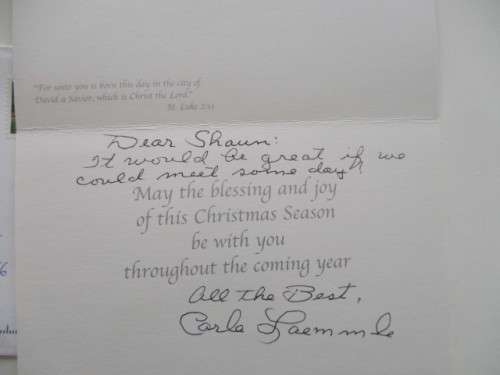 "For unto you is born this day in the city of
David a Savior, which is Christ the Lord."
St. Luke 2:11
Dear Shaun:
It would be great if we
could meet some day!
May the blessing and joy
of this Christmas Season
be with you
throughout the coming year
All the Best,
Carla Laemmle
6